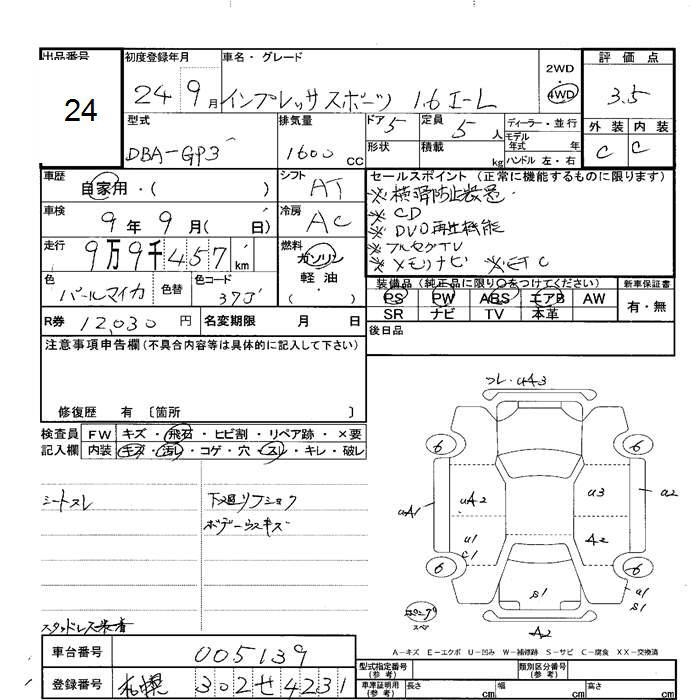 出品番号 初度登録年月 車名・グレード 評価点
24
24 9月 インプレッサスポーツ 1.6 I-L
2WD
・
4WD
3.5
型式 排気量 ドア 5 定員 5人 ディーラー・並行 外装 内装
DBA-GP3 1600 CC 形状 積載 kg モデル年式 年 C C
ハンドル 左・右
車歴 シフト セールスポイント(正常に機能するものに限ります)
自家用・( ) AT ※横滑防止装置
車検 冷房 ※CD
9年9月( 日) AC ※DVD再生機能
走行 燃料 ※フルセグTV
9万9千457km ガソリン ※メモリナビ ※ETC
軽油
( )
色 色替 色コード 装備品(純正品に限り○をつけてください) 新車保証書
パールマイカ 37J PS PW ABS エアB AW 有・無
SR ナビ TV 本革
R券 12,030円 名変期限 月 日 後日品
注意事項申告欄(不具合内容等は具体的に記入して下さい)
修復歴 有 〔箇所 〕
検査員 FW キズ・飛石・ヒビ割・リペア跡・×要
記入欄 内装 キズ・汚レ・コゲ・穴・スレ・キレ・破レ
シートスレ
下廻リフショク
ボデーウスキズ
スタッドレス装着
フレ・UA3
6 6
UA1 UA2 U3 U2
U1 C1 A2
6 6
S1 U1 S1
スペア A2
A-キズ E-エクボ U-凹み W-補修跡 S-サビ C-腐食 XX-交換済
車台番号 005139
登録番号 札幌 302 せ 4231
型式指定番号(参考) 類別区分番号(参考)
車庫証明用(参考) 長さ cm 幅 cm 高さ cm